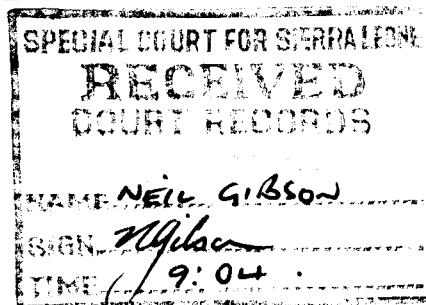 SPECIAL COURT FOR SIERRA LEONE
RECEIVED
COURT RECORDS
NAME NEIL GIBSON
SIGN NGibson
TIME 9:04.